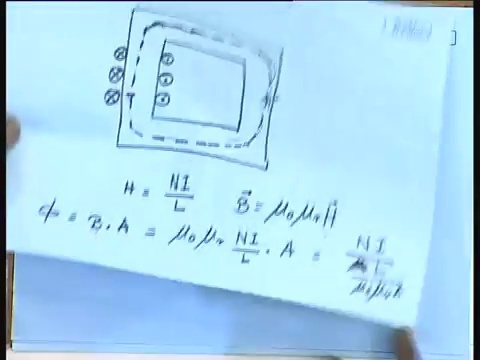 H = NI/L B⃗ = μ₀μᵣH⃗
ϕ = B·A = μ₀μᵣ NI/L · A = NI / (L/μ₀μᵣA)